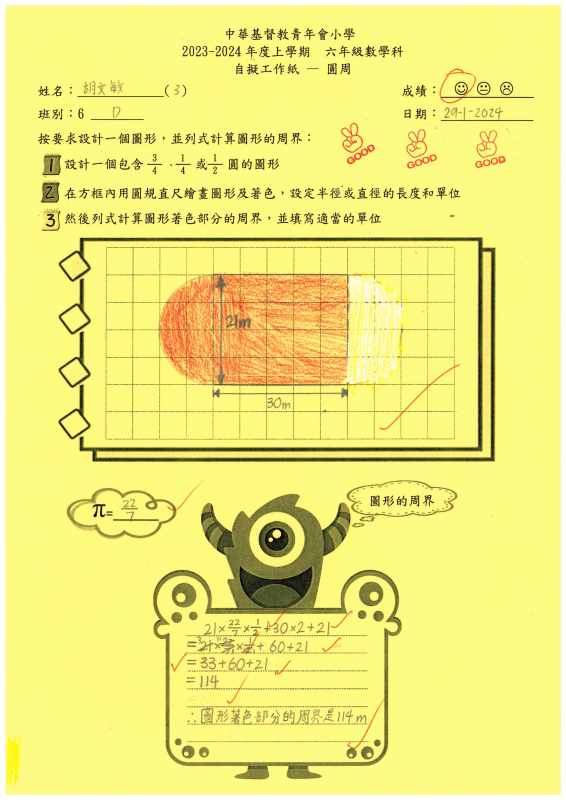 中華基督教青年會小學
2023-2024 年度上學期 六年級數學科
自擬工作紙 — 圓周
姓名：胡文敏(3) 成績：
班別：6 D 日期：29-1-2024
按要求設計一個圖形，並列式計算圖形的周界：
GOOD GOOD GOOD
1 設計一個包含 3/4、1/4 或 1/2 圓的圖形
2 在方框內用圓規直尺繪畫圖形及著色，設定半徑或直徑的長度和單位
3 然後列式計算圖形著色部分的周界，並填寫適當的單位
21m
30m
π= 22/7
圖形的周界
21×22/7×1/2+30×2+21
=21×22/7×1/2+60+21
=33+60+21
=114
∴圖形著色部分的周界是114m